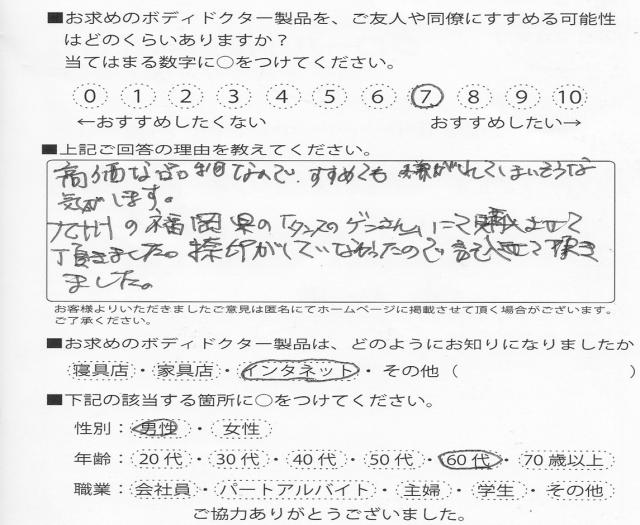 ■お求めのボディドクター製品を、ご友人や同僚にすすめる可能性
はどのくらいありますか？
当てはまる数字に○をつけてください。
0 1 2 3 4 5 6 7 8 9 10
←おすすめしたくない おすすめしたい→
■上記ご回答の理由を教えてください。
高価な品物なので、すすめても 嫌がられてしまいそうな
気がします。
九州の福岡県の「タンスのゲンさん」にて購入させて
頂きました。捺印がしていなかったので記入させて頂き
ました。
お客様よりいただきましたご意見は匿名にてホームページに掲載させて頂く場合がございます。
ご了承ください。
■お求めのボディドクター製品は、どのようにお知りになりましたか
寝具店・家具店・インタネット・その他（ ）
■下記の該当する箇所に○をつけてください。
性別：男性・女性
年齢：20代・30代・40代・50代・60代・70歳以上
職業：会社員・パートアルバイト・主婦・学生・その他
ご協力ありがとうございました。